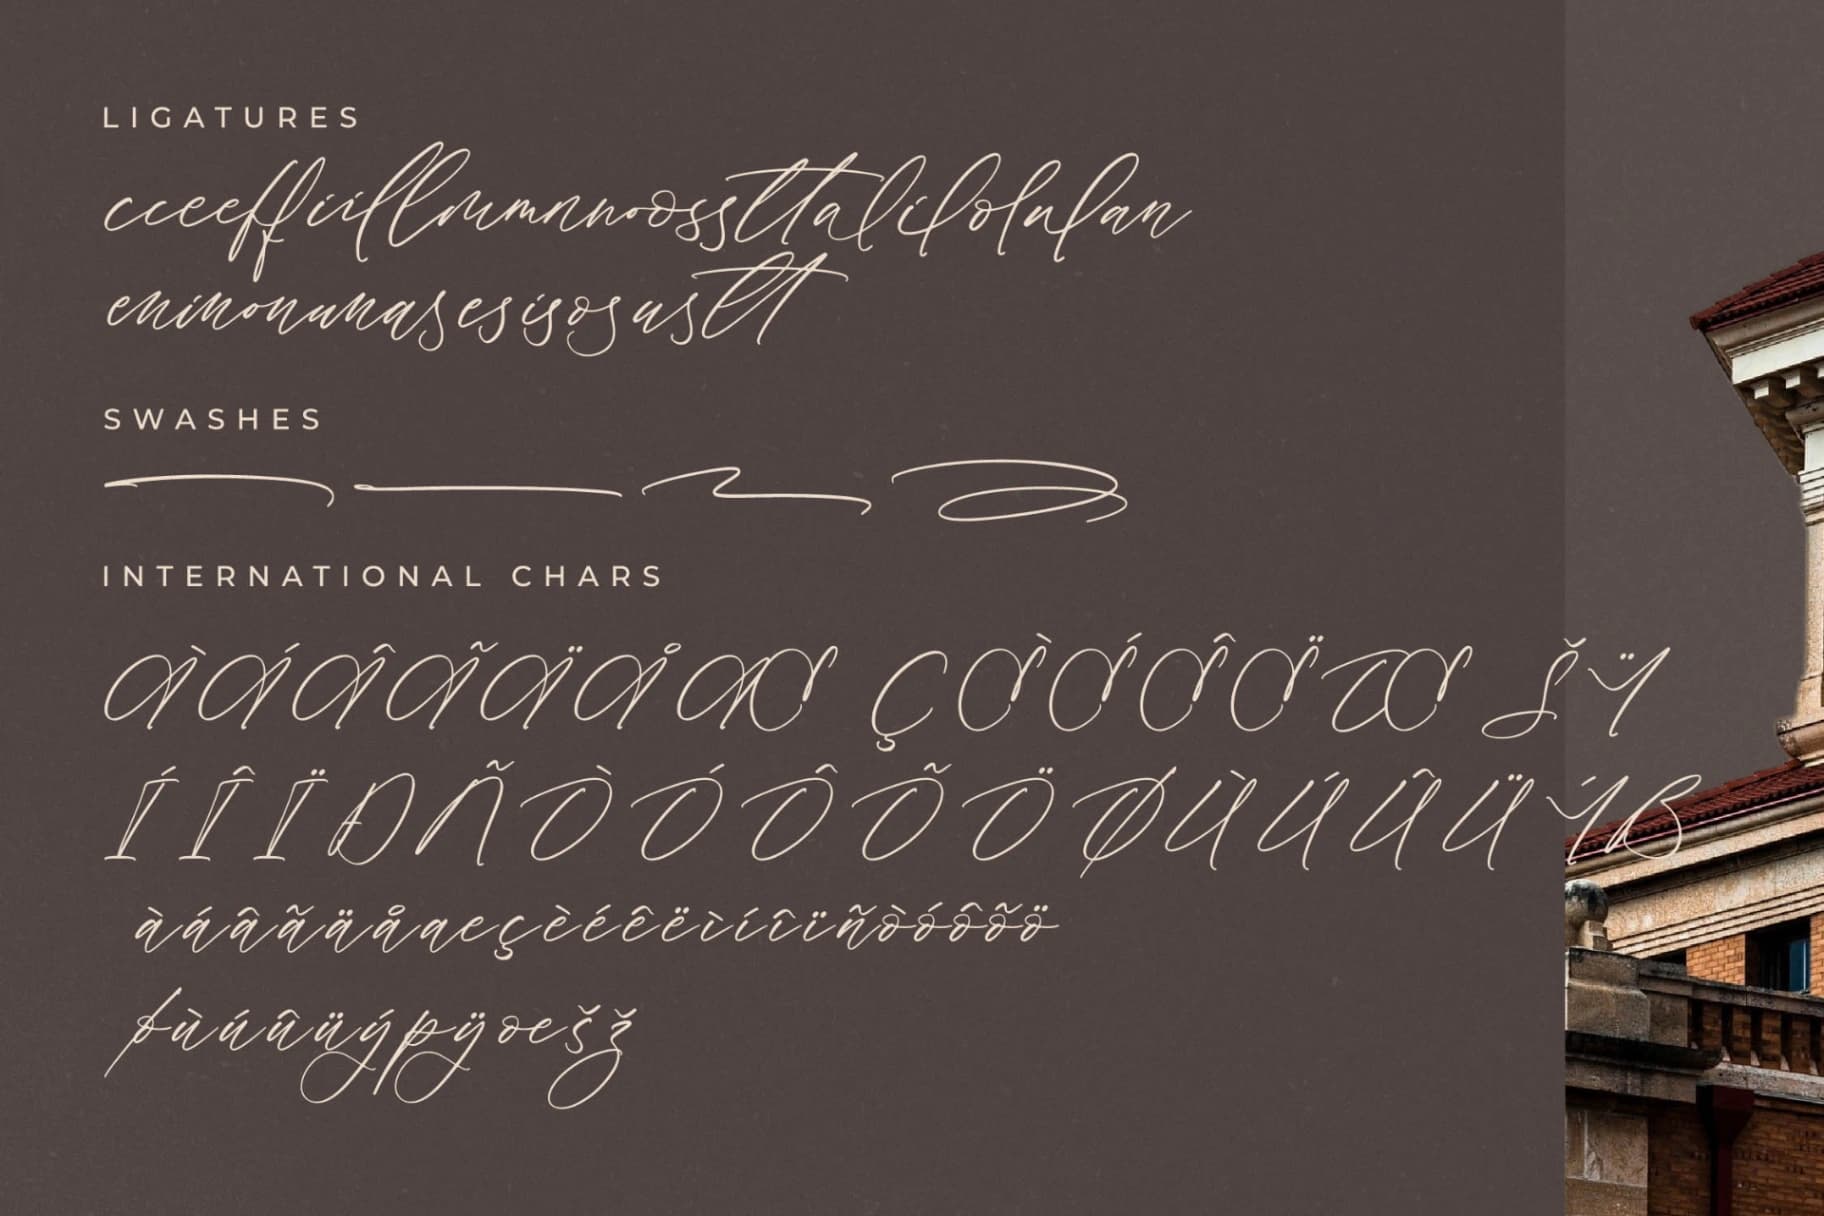 LIGATURES
cceeffiillmmnnoossttalilolulan
eninonunasesisosuslt
SWASHES
INTERNATIONAL CHARS
ÀÁÂÃÄÅÆ ÇÈÉÊËŒ ŠŸ
ÍÎÏÐÑÒÓÔÕÖØÙÚÛÜÝß
àáâãäåæçèéêëìíîïñòóôõö
øùúûüýþÿœšž